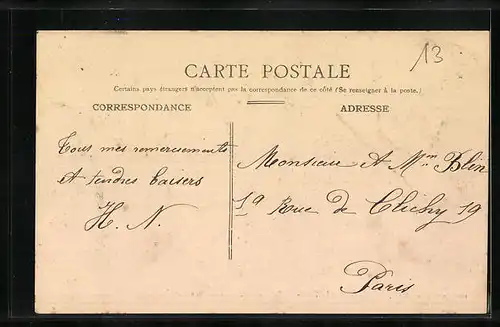 13
CARTE POSTALE
Certains pays étrangers n'acceptent pas la correspondance de ce côté (Se renseigner à la poste.)
CORRESPONDANCE
ADRESSE
Tous mes remerciements
et tendres baisers
H. N.
Monsieur et Mme Blin
19 Rue de Clichy 19
Paris